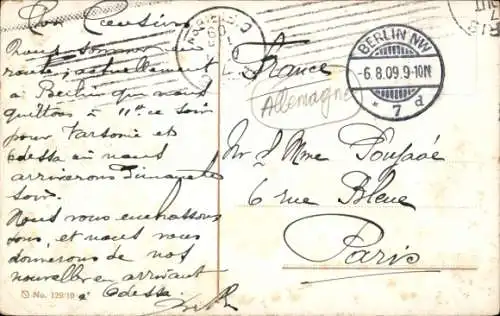 Bon Cousin
Nous sommes en
route, actuellement
à Berlin que nous
quittons à 11h ce soir
pour Varsovie et
Odessa où nous
arriverons dimanche
soir.
Nous vous embrassons
tous, et nous vous
donnerons de nos
nouvelles en arrivant
à Odessa.
France
Allemagne
Mr & Mme
6 rue Bleue
Paris
BERLIN NW
-6.8.09.9-10N
* 7 d
No. 129/10